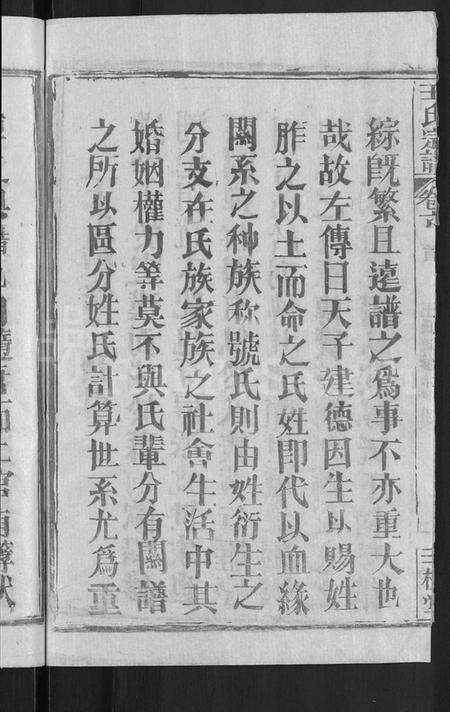 綜既繁且遠譜之爲事不亦重大也
哉故左傳曰天子建德因生以賜姓
胙之以土而命之氏姓即代以血緣
關系之种族称號氏則由姓衍生之
分支在氏族家族之社會生活中其
婚姻權力等莫不與氏輩分有關譜
之所以區分姓氏計算世系尤爲重
王氏宗譜
卷首
三槐堂